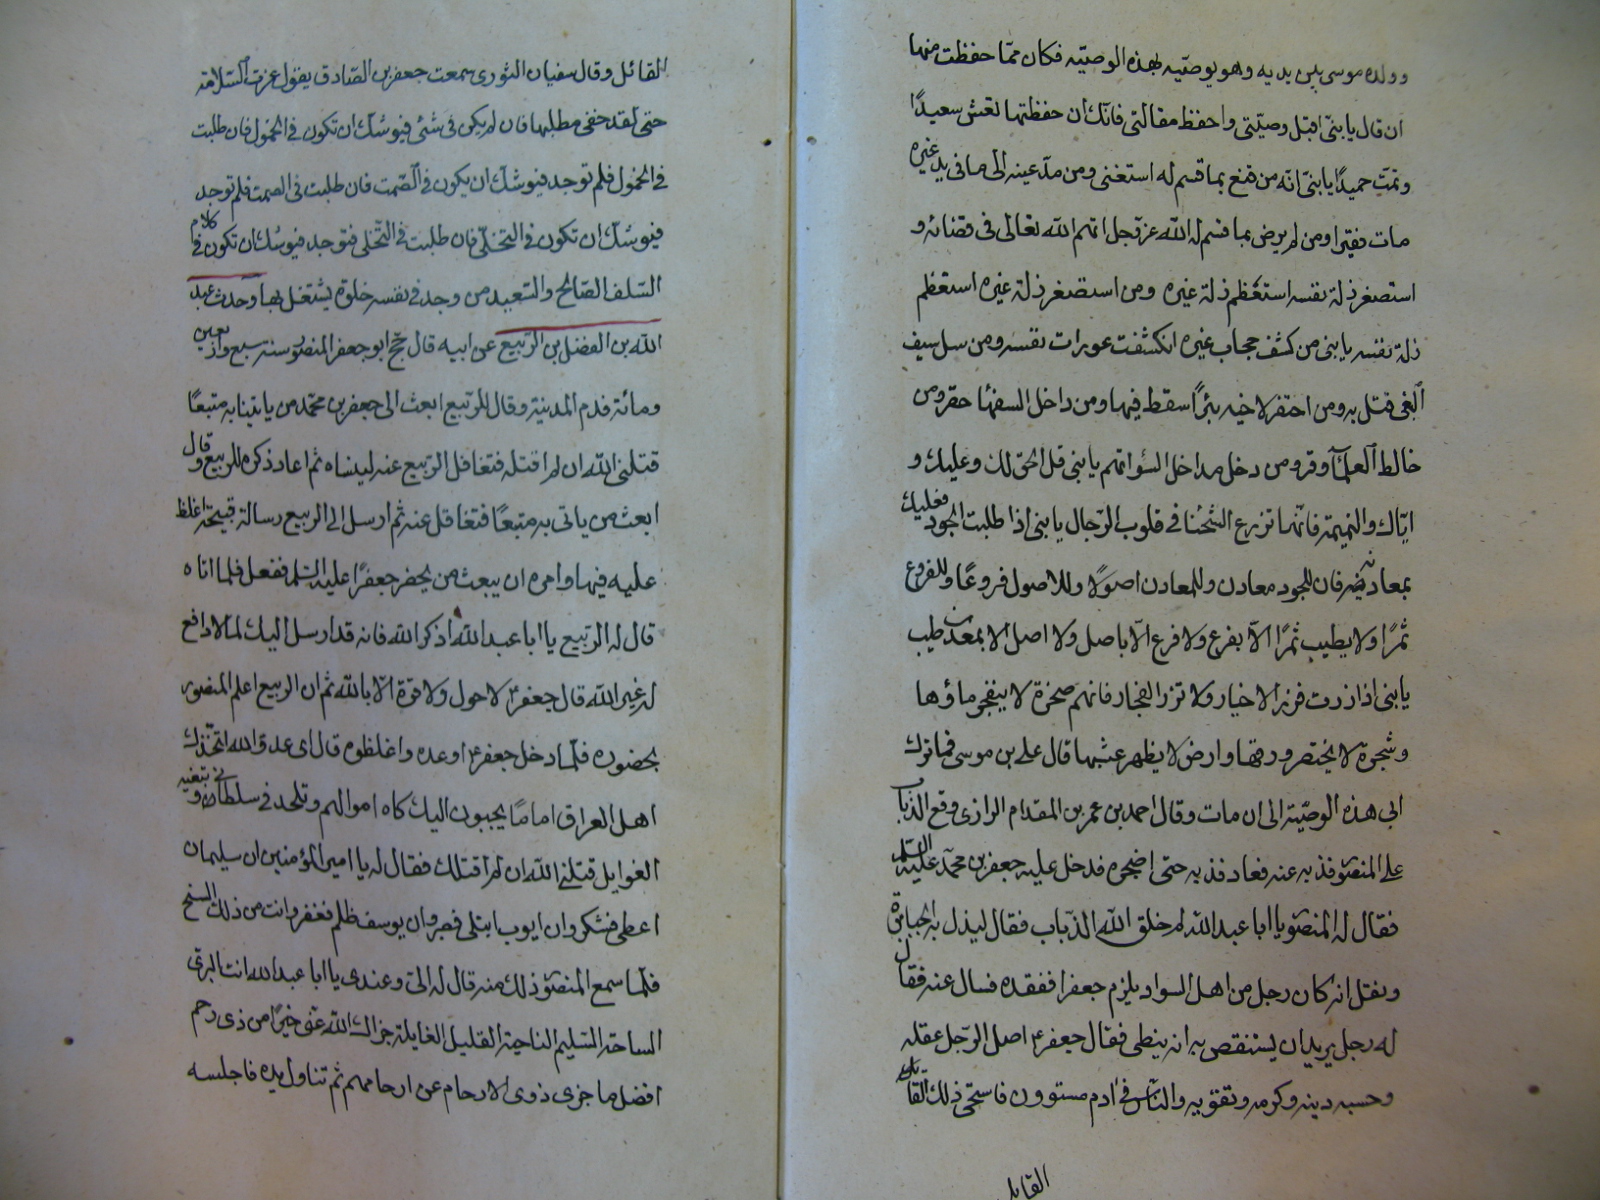 وولده موسى بين يديه وهو يوصيه بهذه الوصيّه فكان ممّا حفظت منها
ان قال يا بنىّ اقبل وصيّتى واحفظ مقالتى فانّك ان حفظتها تعش سعيدًا
وتمت حميدًا يا بنىّ انّه من قنع بما قسم له استغنى ومن مدّ عينه الى ما فى يد غيره
مات فقيرًا ومن لم يرض بما قسم له الله عزّ وجل اتهم الله تعالى فى قضائه و
استصغر ذلة نفسه استعظم ذلة غيره ومن استصغر ذلة غيره استعظم
ذلة نفسه يا بنى من كشف حجاب غيره انكشفت عورات نفسه ومن سل سيف
البغى قتل به ومن احتفر لاخيه بئرًا سقط فيها ومن داخل السفهآ حقر ومن
خالط العلمآ وقر ومن دخل مداخل السوٓ اتهم يا بنى قل الحق لك وعليك و
ايّاك والنميمة فانّها تزرع الشحنا فى قلوب الرّجال يا بنى اذا طلبت الجود فعليك
بمعادنه فان للجود معادن وللمعادن اصولًا وللاصول فروعًا وللفروع
ثمرًا ولا يطيب ثمرًا الّا بفرع ولا فرع الّا باصل ولا اصل الا بمعدن طيب
يا بنى اذا زرت فزر الاخيار ولا تزر الفجار فانهم صخرة لا ينفجر ماؤها
وشجرة لا يخضر ورقها وارض لا يظهر عشبها قال على بن موسى فما ترك
ابى هذه الوصيّة الى ان مات وقال احمد بن عمر بن المقدام الرازى وقع الذباب
على المنصور فذبه عنه فعاد فذبه حتى اضجره فدخل عليه جعفر بن محمّد عليه السلم
فقال له المنصور يا ابا عبد الله لم خلق الله الذّباب فقال ليذل به الجبابرة
ونقل انه كان رجل من اهل السواد يلزم جعفرا ففقده فسال عنه فقال
له رجل يريد ان يستنقص به انه نبطى فقال جعفر ع اصل الرّجل عقله
وحسبه دينه وكرمه تقويه والنّاس فى ادم مستوون فاستحى ذلك القائل
القايل
القائل وقال سفيان الثورى سمعت جعفر بن الصّادق يقول عزت السّلامة
حتى لقد خفى مطلبها فان لم يكن فى شئى فيوشك ان تكون فى الخمول فان طلبت
فى الخمول فلم توجد فيوشك ان يكون فى الصّمت فان طلبت فى الصمت فلم توجد
فيوشك ان تكون فى التخلّى فان طلبت فى التخلى فتوجد فيوشك ان تكون فى كلام
السّلف الصّالح والسّعيد من وجد فى نفسه خلوة يشتغل بها وحدث عبد
الله بن الفضل بن الرّبيع عن ابيه قال حجّ ابو جعفر المنصور سنة سبع واربعين
ومائة قدم المدينة وقال للرّبيع ابعث الى جعفر بن محمّد من ياتينا به متبعًا
قتلنى الله ان لم اقتله فتغافل الرّبيع عنه لينساه ثم اعاد ذكره للربيع وقال
ابعث من ياتى به متبعًا فتغافل عنه ثم ارسل الى الربيع رسالة قبيحة اغلظ
عليه فيها وامره ان يبعث من يحضر جعفرًا عليه السّلم ففعل فلما اتاه
قال له الرّبيع يا ابا عبد الله اذكر الله فانه قد ارسل اليك لما لا دافع
له غير الله قال جعفر ع لا حول ولا قوة الّا بالله ثم ان الربيع اعلم المنصور
بحضوره فلمّا دخل جعفر ع اوعده واغلظوه قال اى عدوّ الله اتخذك
اهل العراق امامًا يجبون اليك زكاه اموالهم وتلحد فى سلطانى وتبغيه
الغوايل قتلنى الله ان لم اقتلك فقال له يا امير المؤمنين ان سليمان
اعطى فشكر وان ايوب ابتلى فصبر وان يوسف ظلم فغفر وانت من ذلك السنخ
فلمّا سمع المنصور ذلك منه قال له الىّ وعندى يا ابا عبد الله انت البرىّ
الساحة السّليم الناحية القليل الغايلة جزاك الله عنّى خيرًا من ذى رحم
افضل ما جزى ذوى الارحام عن ارحامهم ثم تناول يده فاجلسه